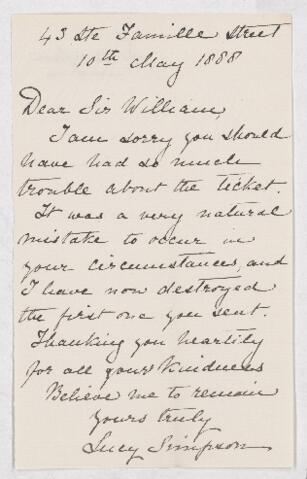 43 Ste Famille Street
10th May 1888
Dear Sir William,
I am sorry you should
have had so much
trouble about the ticket.
It was a very natural
mistake to occur in
your circumstances, and
I have now destroyed
the first one you sent.
Thanking you heartily
for all your kindness
Believe me to remain
yours truly
Lucy Simpson